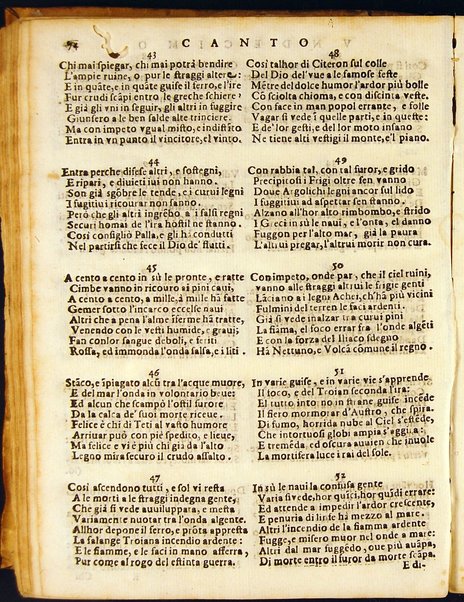 92 CANTO
43
Chi mai spiegar, chi mai potrà bendire
L'ampie ruine, o pur le straggi altere:
E in quāte, e in quāte guise il ferro, e l'ire
Fur crudi scāpi entro le greche schiere?
E già gli vni in seguir, gli altri in fuggire
Giunsero a le ben salde alte trinciere.
Ma con impeto vgual misto, e indistīto
Entra in vn punto il vincitore, el vinto.
44
Entra perche difese altri, e sostegni,
E ripari, e diuieti iui non hanno.
Son già sgōbre le tende, e i curui legni
I fugitiui ricourar non sanno.
Però che gli altri ingrēbo a i salsi regni
Securi homai de l'ira hostil ne stanno.
Così consigliò Palla, e gli hà condutti
Nel partirsi che fece il Dio de' flutti.
45
A cento a cento in sù le pronte, e ratte
Cimbe vanno in ricouro ai pini caui,
A cento a mille, à mille hà fatte
Gemer sotto l'incarco eccelse naui
Altri che a pena l'alme īferme hà tratte,
Venendo con le vesti humide, e graui;
Fan conlor sangue deboli, e feriti
Rossa, ed immonda l'onda salsa, e i liti.
46
Stāco, e spiagato alcū tra l'acque muore,
E del mar l'onda in volontario beue:
Ed alcun che scampò l'ostil furore.
Da la calca de' suoi morte riceue.
Felice è chi di Teti al vasto humore
Arriuar può con piè spedito, e lieue,
Ma felice e vi è più chi già da l'alto
Legno mira securo il crudo assalto.
47
Così ascendono tutti, e sol vi resta
A le morti a le straggi indegna gente,
Che già si vede auuiluppata, e mesta
Variamente nuotar tra l'onda algente.
Allhor depone il ferro, e prōta appresta
La falange Troiana incendio ardente:
E le fiamme, e le faci in mano afferra,
Pur come al rogo del estinta guerra.
48
Così talhor di Citeron sul colle
Del Dio del'vue a le famose feste
Mētre del dolce humor l'ardor più bolle
Cō sciolta chioma, e con discinta veste.
Con face in man popol errante, e folle
Vagar si vede ī quelle parti, e in queste:
E de'lor gesti, e del lor moto insano
Ne tiene alti vestigi il monte, e'l piano.
49
Con rabbia tal, con tal furor, e grido
Precipitosi i Frigi oltre sen vanno
Doue Argolichi legni ancor sul lido
I fuggitiui ad aspettar sen stanno.
Alzano all'hor alto rimbombo, e strido
I Greci in sù le naui, e l'onta, el danno
Fuggon per l'alto mar, già da la paura
L'altrui pregar, l'altrui morir non cura.
50
Con impeto, onde par, che il ciel ruini,
vanno alle straggi altrui le frigie genti
Lāciano ai legni Achei, ch'hà più vicini
Fulmini del terren le faci ardenti.
Già si vede inalzar tra curui pini
La fiāma, el foco errar fra l'onde algēti
E con la forza del Iliaco sdegno
Hà Nettuno, e Volcā comune il regno.
51
In varie guise, e in varie vie s'apprende
Il foco, e del Troian seconda l'ira:
El tutto into: no in strane guise incēde
Il fiero mormorar d'Austro, che spira.
Di fumo, horrida nube al Ciel s'estēde,
Che intortuosi globi ampia s'aggira:
E tremēda, ed oscura auuien che inuole
La mortifera luce i rai del sole.
52
In sù le naui la confusa gente
Varia si vede, hor quīci, hor quīdi errare:
Ed attende a impedir l'ardor crescente,
E penuria di linfe hà mezzo al mare.
Altri l'incendio de la fiamma ardente
Fugge, e misero muor nel onde a mare:
Altri dal mar fuggēdo, oue più auāpa,
Di morte entro il furor da morte scāpa.
E di-